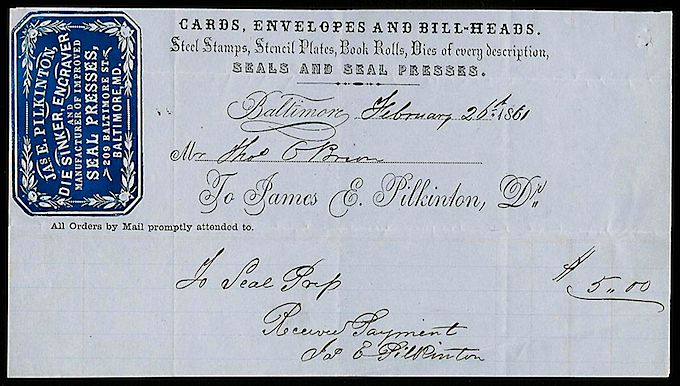 JAS. E. PILKINTON,
DIE SINKER, ENGRAVER
AND
MANUFACTURER OF IMPROVED
SEAL PRESSES,
209 BALTIMORE ST.
BALTIMORE, MD.
CARDS, ENVELOPES AND BILL-HEADS.
Steel Stamps, Stencil Plates, Book Rolls, Dies of every description,
SEALS AND SEAL PRESSES.
Baltimore, February 26th 1861
Mr Thos O Brien
To James E. Pilkinton, Dr.
All Orders by Mail promptly attended to.
To Seal Press $ 5.00
Received Payment
Jas E Pilkinton